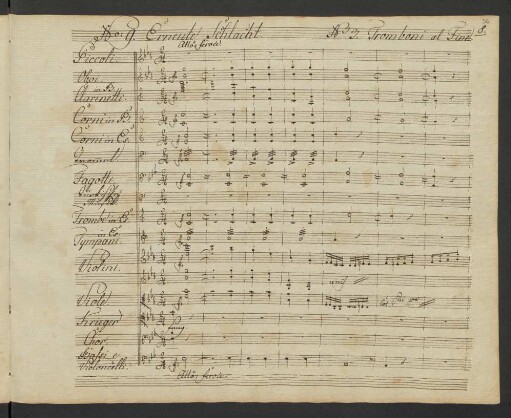 No: 9. Erneute Schlacht. No 3 Tromboni al Fine 8.
Allo: feroce.
Piccoli.
Oboi.
Clarinetti
in B.
Corni in B.
Corni in Es.
Fagotte
Trombe in Es
in Es
Tympani.
Violini.
unis
Viole
Krieger
Chor.
Bassi e
Violoncelli.
Allo: feroce.